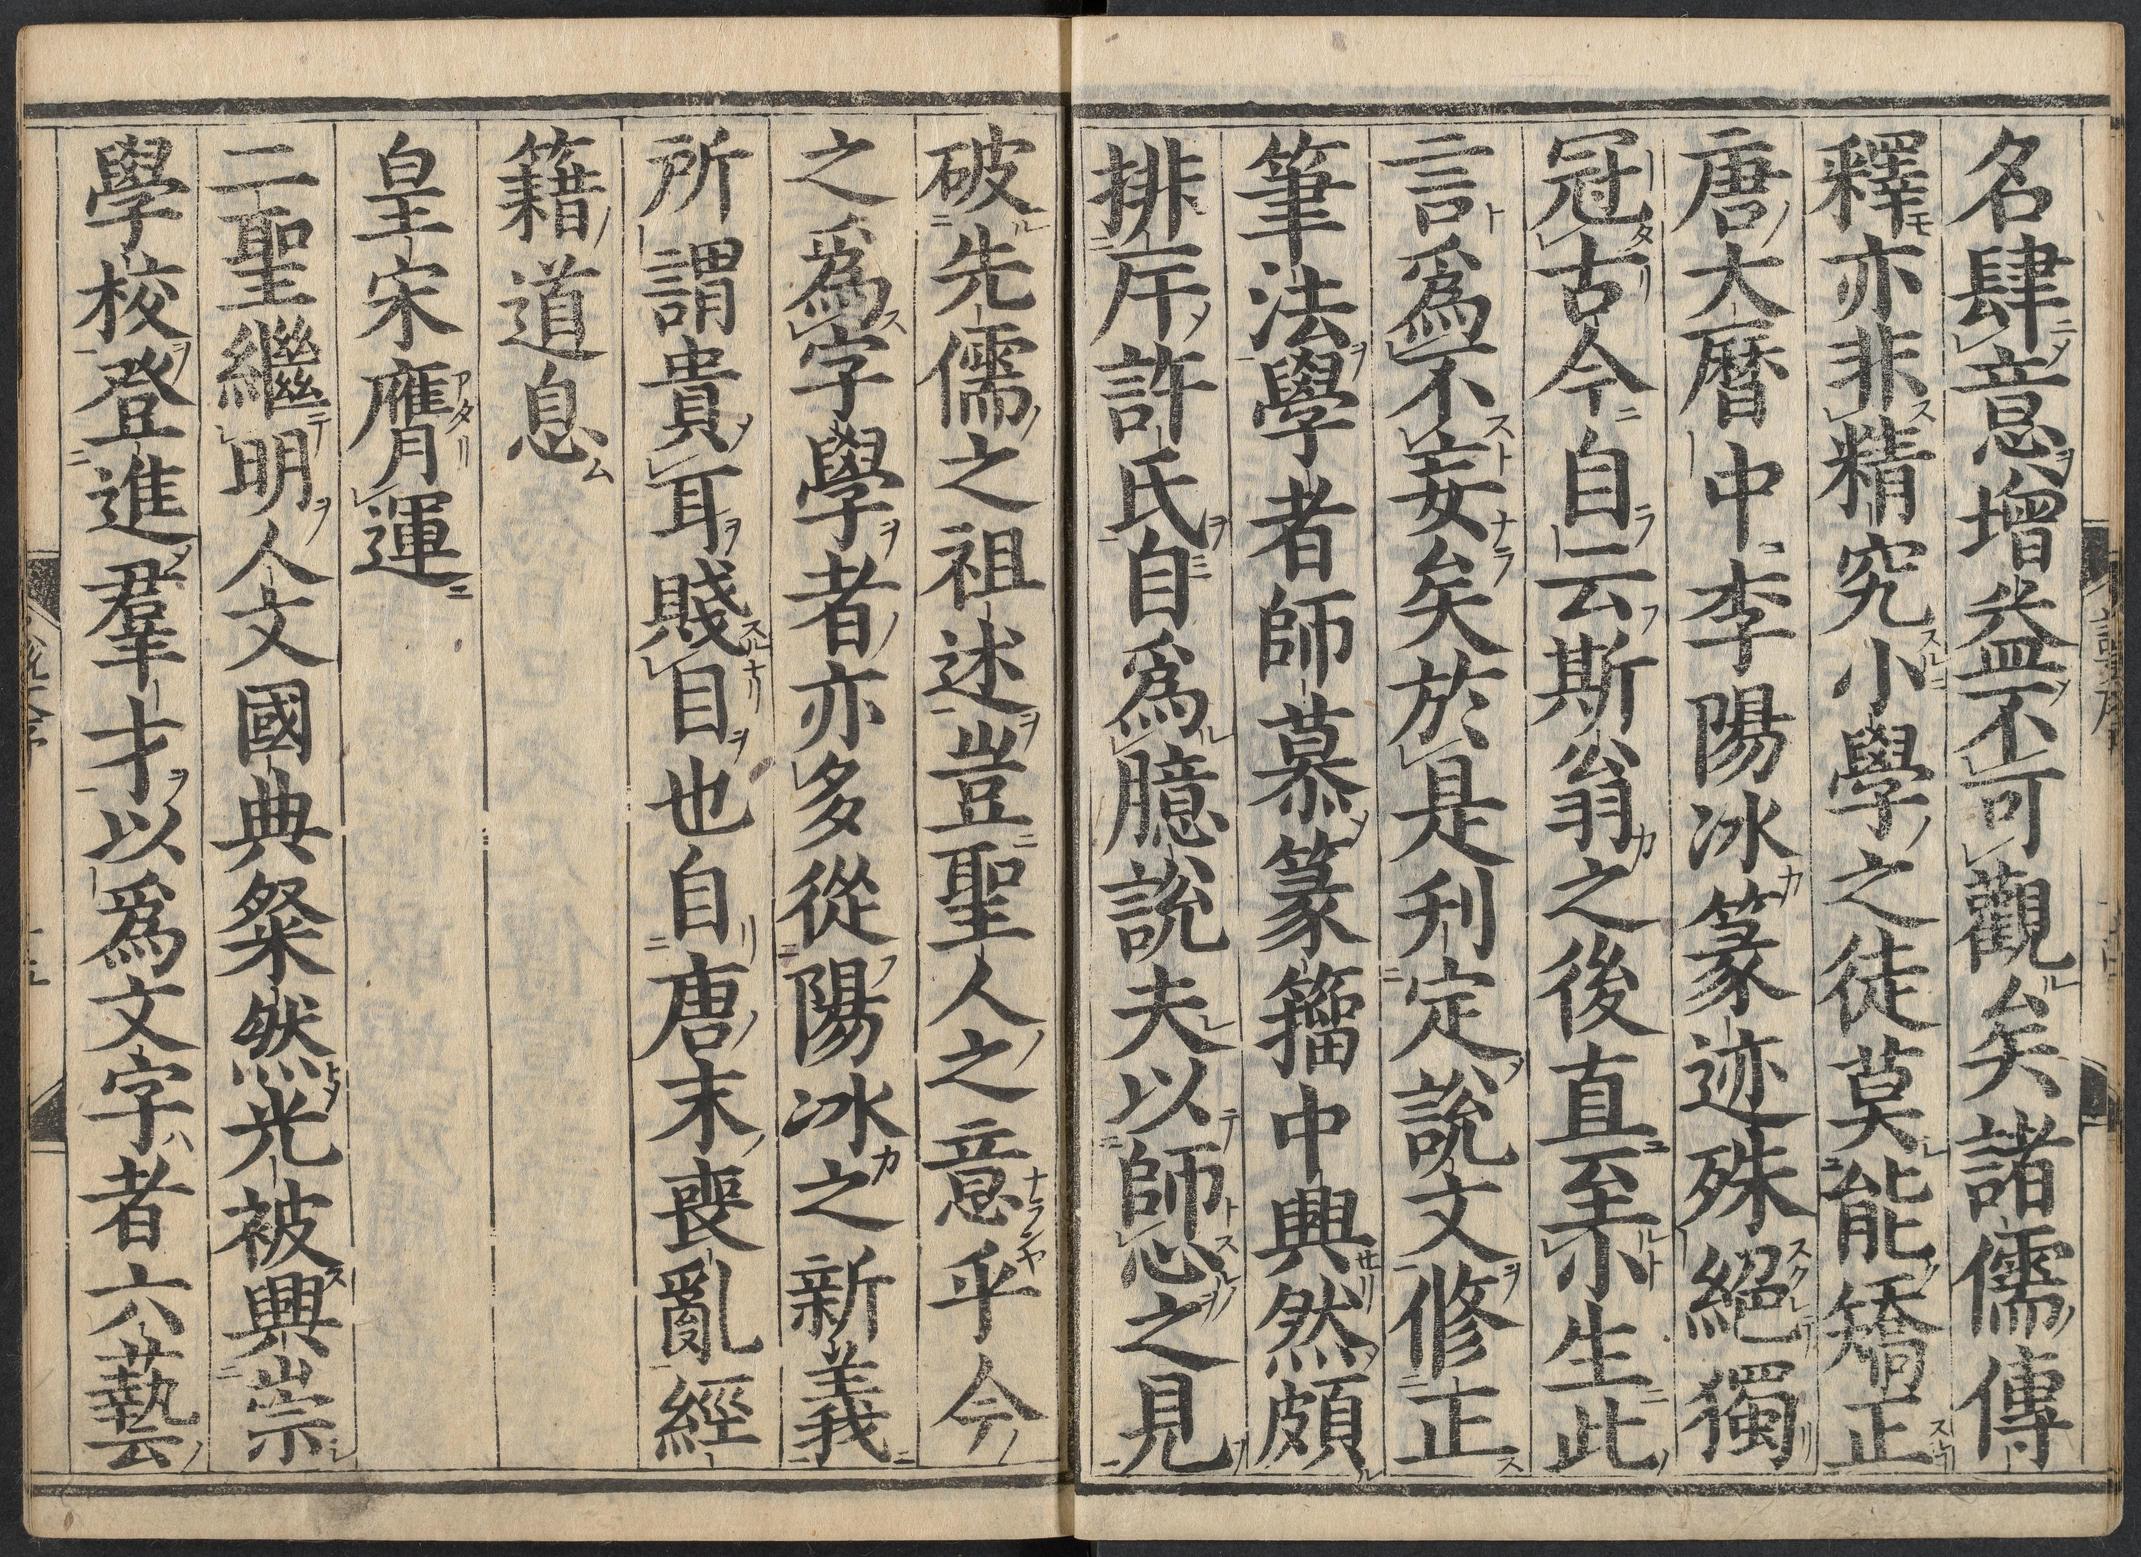 名肆意增益不可觀矣諸儒傳
釋亦非精究小學之徒莫能矯正
唐大曆中李陽冰篆迹殊絕獨
冠古今自云斯翁之後直至小生此
言爲不妄矣於是刋定說文修正
筆法學者師慕篆籀中興然頗
排斥許氏自爲臆說夫以師心之見
破先儒之祖述豈聖人之意乎今
之爲字學者亦多從陽冰之新義
所謂貴耳賤目也自唐末喪亂經
籍道息
皇宋膺運
二聖繼明人文國典粲然光被興崇
學校登進羣才以爲文字者六藝